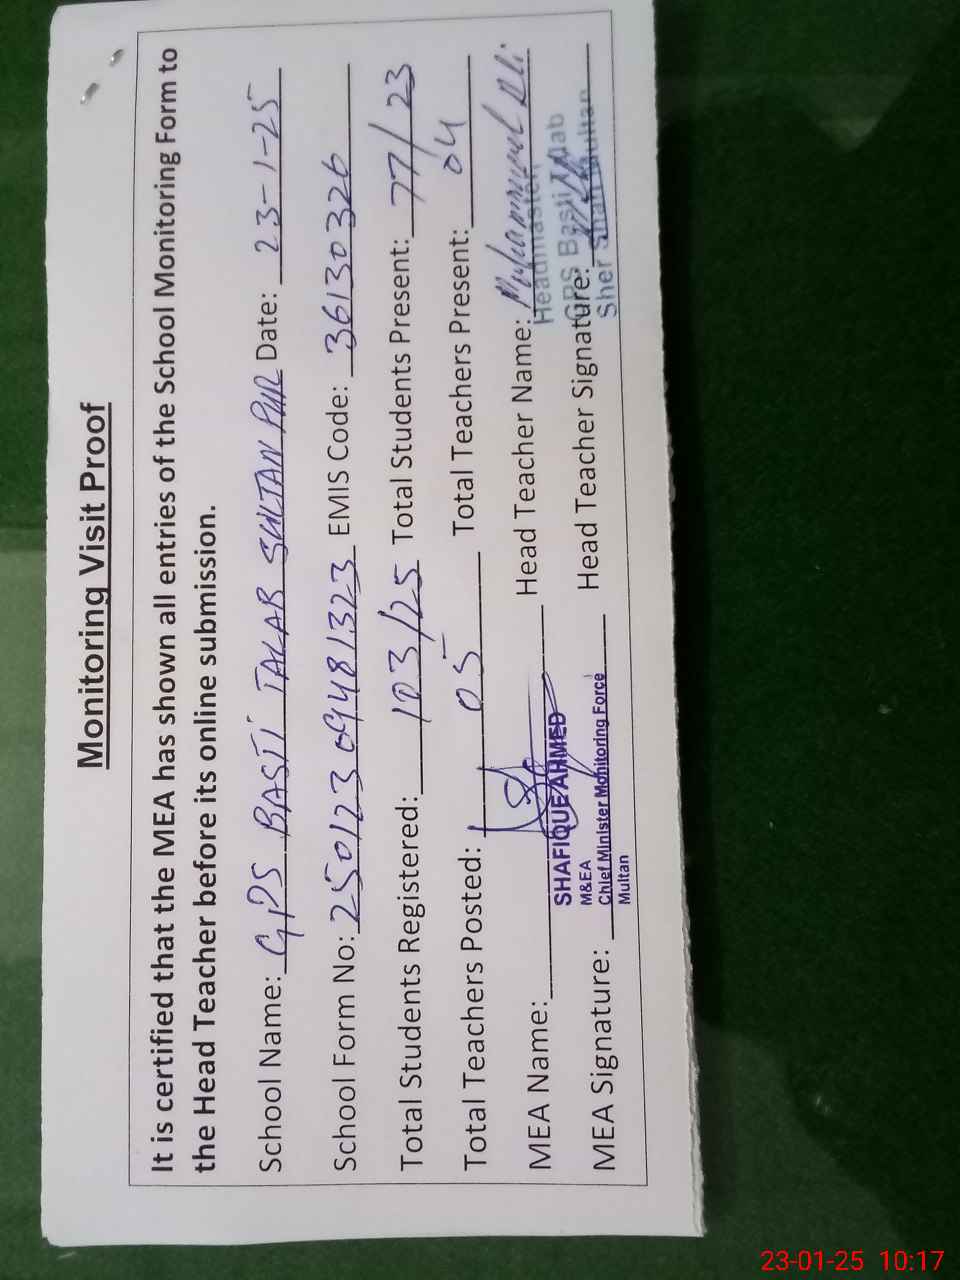 Monitoring Visit Proof
It is certified that the MEA has shown all entries of the School Monitoring Form to
the Head Teacher before its online submission.
School Name: GPS BASTI TALAB SULTAN PUR Date: 23-1-25
School Form No: 250123 09481323 EMIS Code: 36130326
Total Students Registered: 103/25 Total Students Present: 77/23
Total Teachers Posted: 05 Total Teachers Present: 04
MEA Name: Head Teacher Name: Muhammad Ali
SHAFIQUE AHMED
M&EA
Chief Minister Monitoring Force
Multan
Headmaster
GPS Basti Talab
Sher Shah Multan
MEA Signature: Head Teacher Signature:
23-01-25 10:17